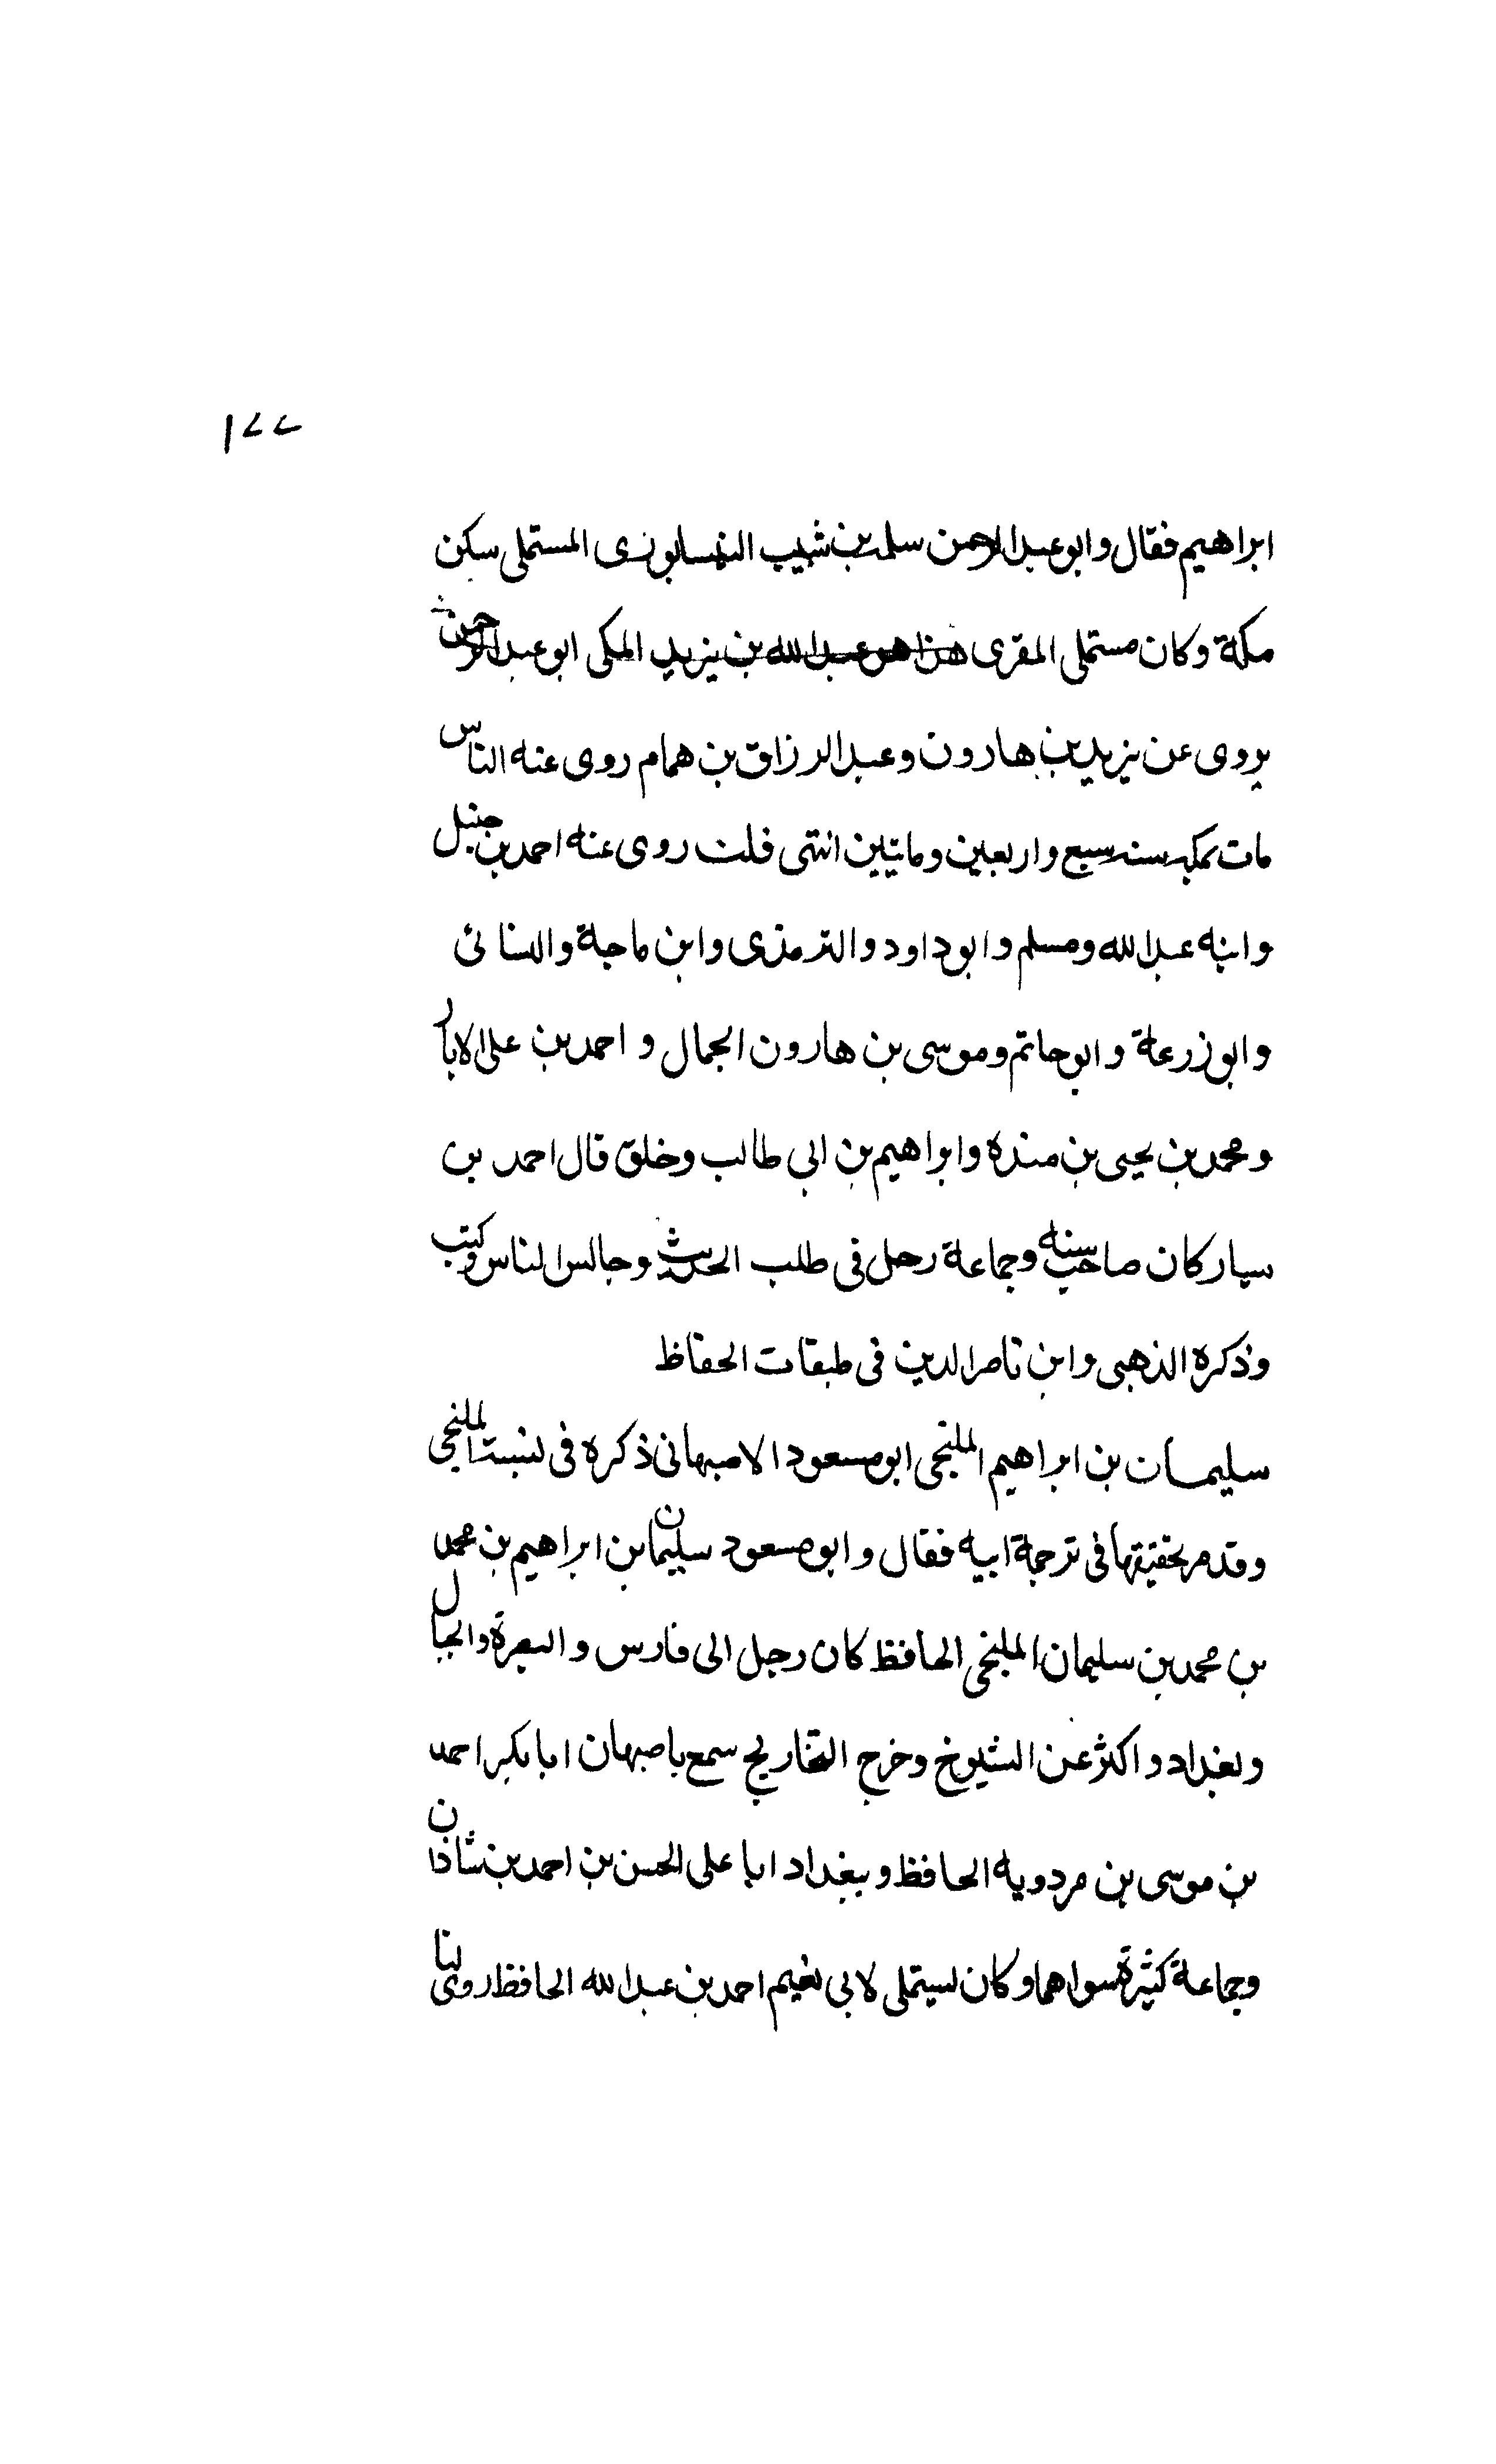 ١٧٧
ابراهيم فقال وابو عبد الرحمن سلمة بن شبيب النيسابوزى المستملى سكن
مكة وكان مستملى المقرى هذا هو عبد الله بن يزيد المكى ابو عبد الرحمن
يروى عن يزيد بن هارون وعبد الرزاق بن همام روى عنه الناس
مات بمكة سنة سبع واربعين وماتيين انتهى قلت روى عنه احمد بن حنبل
وابنه عبد الله ومسلم وابو داود والترمذى وابن ماجة والنسائى
وابو زرعة وابو حاتم وموسى بن هارون الجمال و احمد بن على الابار
ومحمد بن يحيى بن منده وابراهيم بن ابى طالب وخلق قال احمد بن
سيار كان صاحب سنه وجماعة رحل فى طلب الحديث وجالس الناس وكتب
وذكره الذهبى وابن ناصر الدين فى طبقات الحفاظ
سليمان بن ابراهيم الملنجى ابو مسعود الاصبهانى ذكره فى نسبة الملنجي
وقد مر تحقيقها فى ترجمة ابيه فقال وابو مسعود سليمان بن ابراهيم بن محمد
بن محمد بن سليمان الملنجى الحافظ كان رجل الى فارس والبصرة والجبال
وبغداد واكثر عن الشيوخ وخرج التخاريج سمع باصبهان ابا بكر احمد
بن موسى بن مردويه الحافظ وببغداد ابا على الحسن بن احمد بن شاذان
وجماعة كثيرة سواهما وكان يستملى لابى نعيم احمد بن عبد الله الحافظ روى لنا